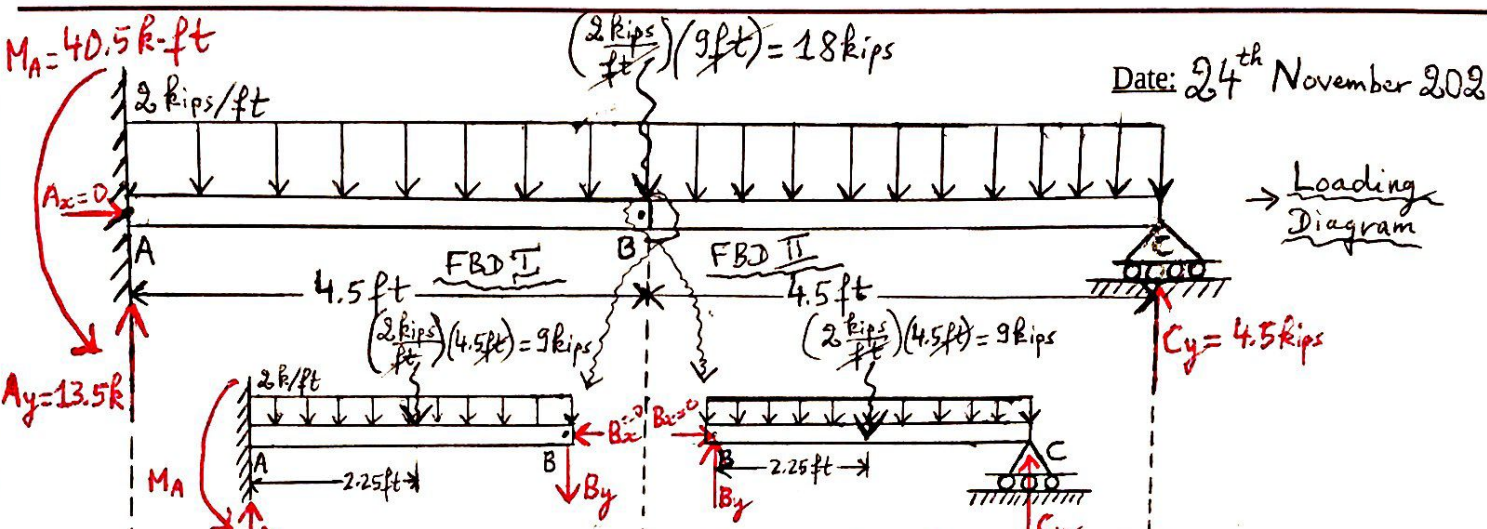 M_A = 40.5 k-ft
(2 kips/ft)(9ft) = 18 kips
Date: 24th November 202
2 kips/ft
A_x=0
Loading
Diagram
A
B
C
FBD I
FBD II
4.5 ft
4.5 ft
(2 kips/ft)(4.5ft) = 9 kips
(2 kips/ft)(4.5ft) = 9 kips
C_y = 4.5 kips
A_y=13.5k
2 k/ft
B_x=0
B_x=0
A
B
B
C
2.25ft
2.25ft
M_A
B_y
B_y